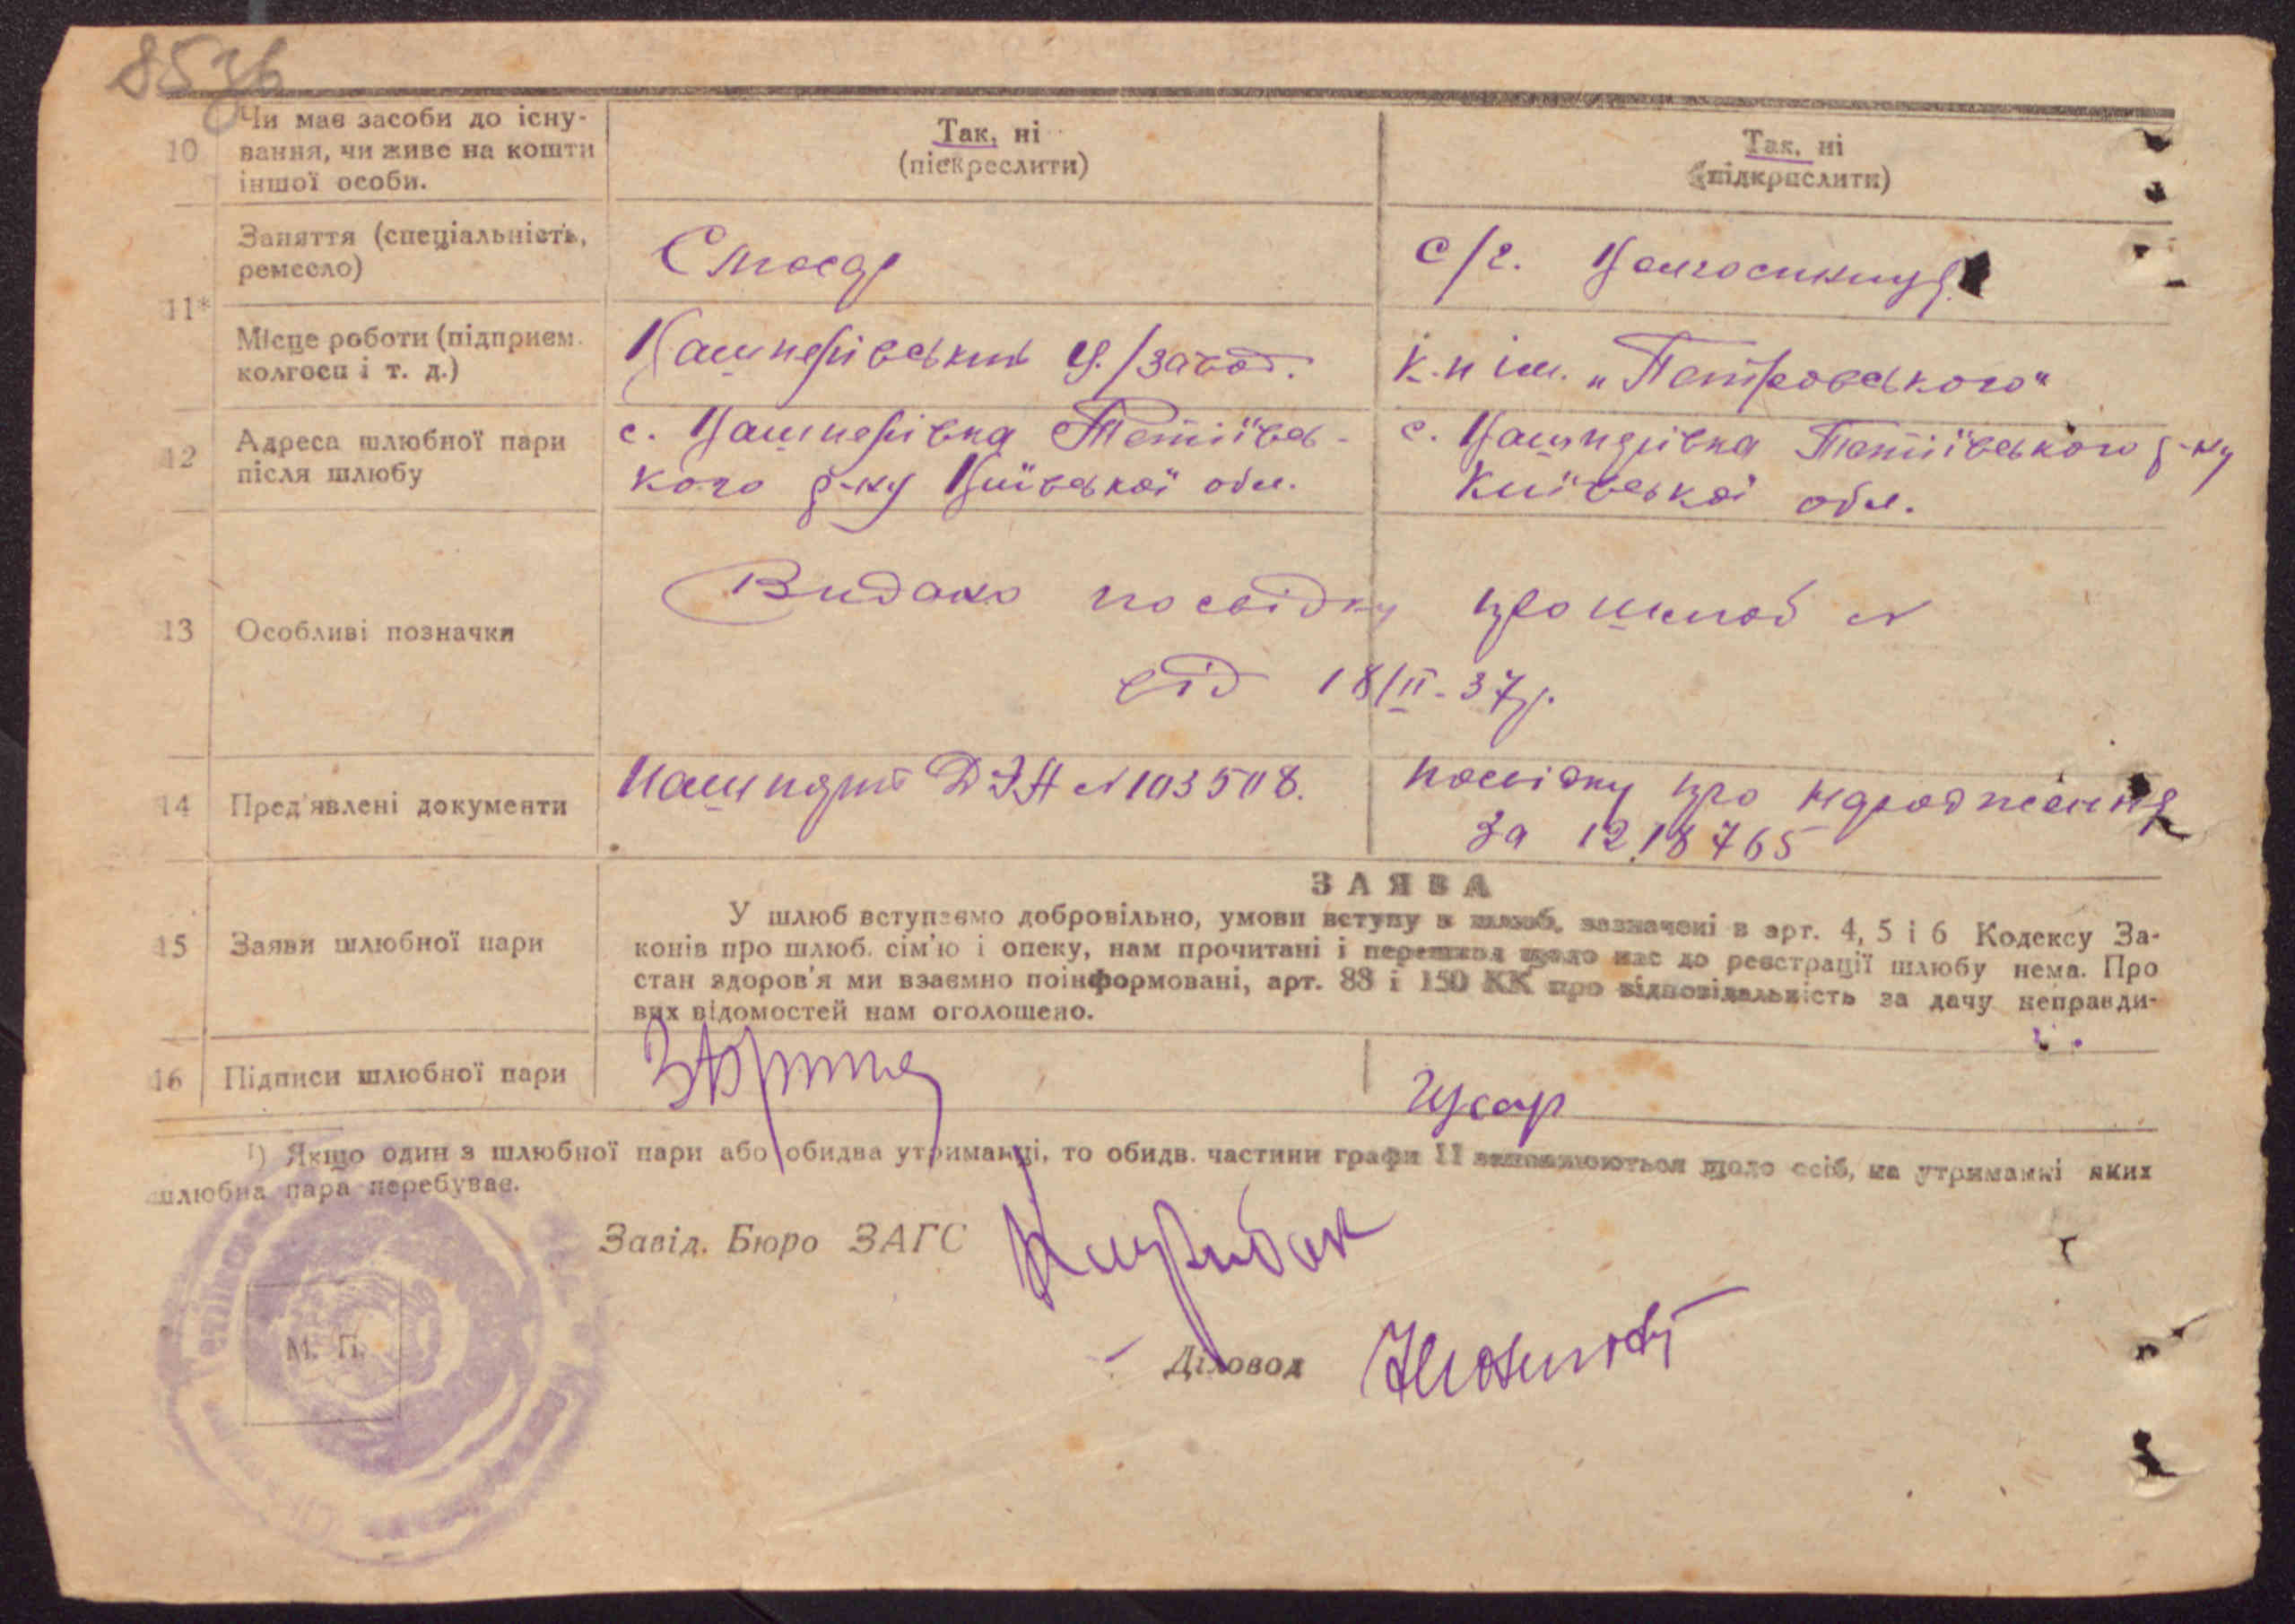 8536
10 Чи має засоби до існу-
вання, чи живе на кошти
іншої особи.
Так, ні
(піекреслити)
Так, ні
(підкрислити)
11*
Заняття (спеціальність,
ремесло)
Слюсар
с/г. Колгоспниця
Місце роботи (підприєм.
колгосп і т. д.)
Кашперівський ц./завод.
к-п ім. „Петровського"
12 Адреса шлюбної пари
після шлюбу
с. Кашперівка Тетіївсь-
кого р-ну Київської обл.
с. Кашперівка Тетіївського р-ну
Київської обл.
13 Особливі позначки
Видано посвідку про шлюб №
від 18/II-37р.
14 Пред'явлені документи
Пашпорт № 103508.
посвідку про народження
за 1218765
15 Заяви шлюбної пари
ЗАЯВА
У шлюб вступаємо добровільно, умови вступу в шлюб, зазначені в арт. 4, 5 і 6 Кодексу За-
конів про шлюб. сім'ю і опеку, нам прочитані і перешкод щодо нас до реєстрації шлюбу нема. Про
стан здоров'я ми взаємно поінформовані, арт. 88 і 150 КК про відповідальність за дачу неправди-
вих відомостей нам оголошено.
16 Підписи шлюбної пари
Гусар
¹) Якщо один з шлюбної пари або обидва утриманці, то обидв. частини графи 11 заповнюються щодо осіб, на утриманні яких
шлюбна пара перебуває.
Завід. Бюро ЗАГС
М. П.
Діловод